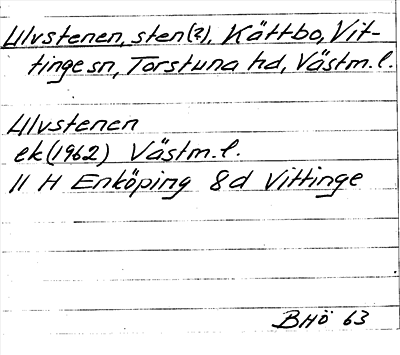 Ulvstenen, sten(?), Kättbo, Vit-
tinge sn, Torstuna hd, Västm.l.
Ulvstenen
ek(1962) Västm.l.
11 H Enköping 8d Vittinge
BHö 63